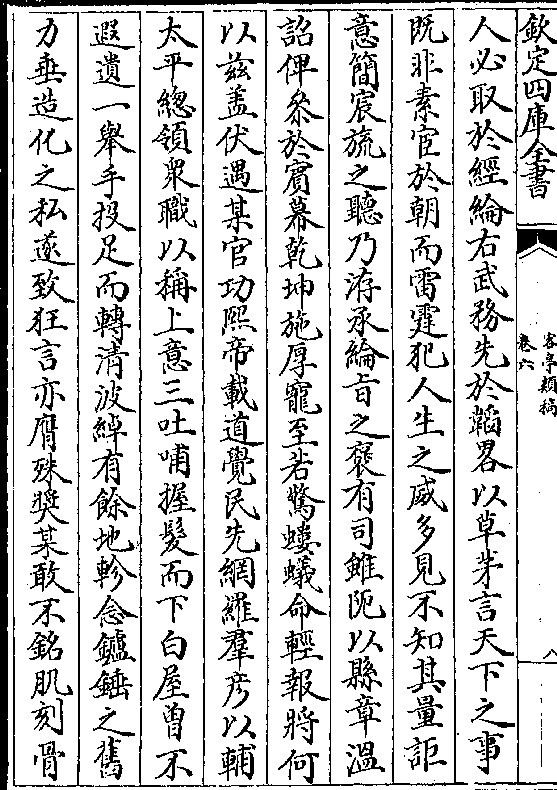 欽定四庫全書
客亭類稿
卷六
八
人必取於經綸右武務先於韜畧以草茅言天下之事
既非素宦於朝而雷霆犯人生之威多見不知其量詎
意簡宸旒之聽乃洊承綸㫖之褒有司雖阨以縣章溫
詔俾叅於賓幕乾坤施厚寵至若驚螻蟻命輕報將何
以兹盖伏遇某官功熙帝載道覺民先網羅羣彦以輔
太平總領衆職以稱上意三吐哺握髮而下白屋曽不
遐遺一舉手投足而轉清波綽有餘地軫念鑪錘之舊
力埀造化之私遂致狂言亦膺殊奬某敢不銘肌刻骨